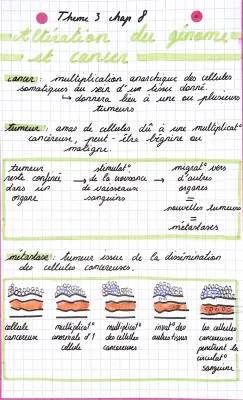 Theme 3 chap 8
Altération du génome
et cancer
cancer : multiplication anarchique des cellules
somatiques au sein d'un tissu donné.
↳ donnera lieu à une ou plusieurs
tumeurs
tumeur : amas de cellules dû à une multiplicat°
cancéreuse, peut-être bégnine ou
maligne.
tumeur
reste confinée
dans un
organe
→ stimulat°
de la croissance
de vaisseaux
sanguins
→ migrat° vers
d'autres
organes
=
nouvelles tumeurs
=
métastases
métastase : tumeur issue de la dissémination
des cellules cancéreuses.
cellule
cancéreux
multiplicat°
anormale d'1
cellule
multiplicat°
des cellules
cancéreuses
invas° des
autres tissus
les cellules
cancéreuses
pénètrent la
circulat°
sanguine